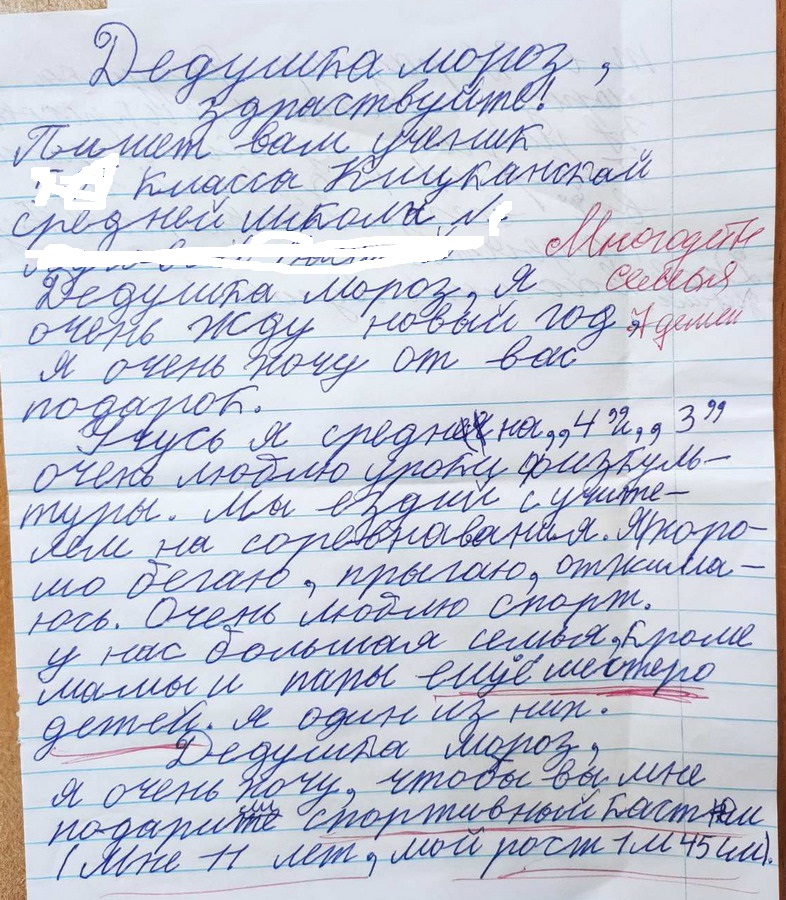 Дедушка мороз,
здраствуйте!
Пишет вам ученик
класса Кишуканской
средней школы №
Многодетн
семья
Дедушка мороз, я
очень жду новый год,
7 детей
я очень хочу от вас
подарок.
Учусь я средне на „4" и „3"
очень люблю уроки физкуль-
туры. Мы ездим с учите-
лем на соревнавания. Я хоро-
шо бегаю, прыгаю, отжима-
юсь. Очень люблю спорт.
у нас большая семья, кроме
мамы и папы ещё шестеро
детей. я один из них.
Дедушка мороз,
я очень хочу, чтобы вы мне
подарили спортивный кастюм
(Мне 11 лет, мой рост 1м 45см).